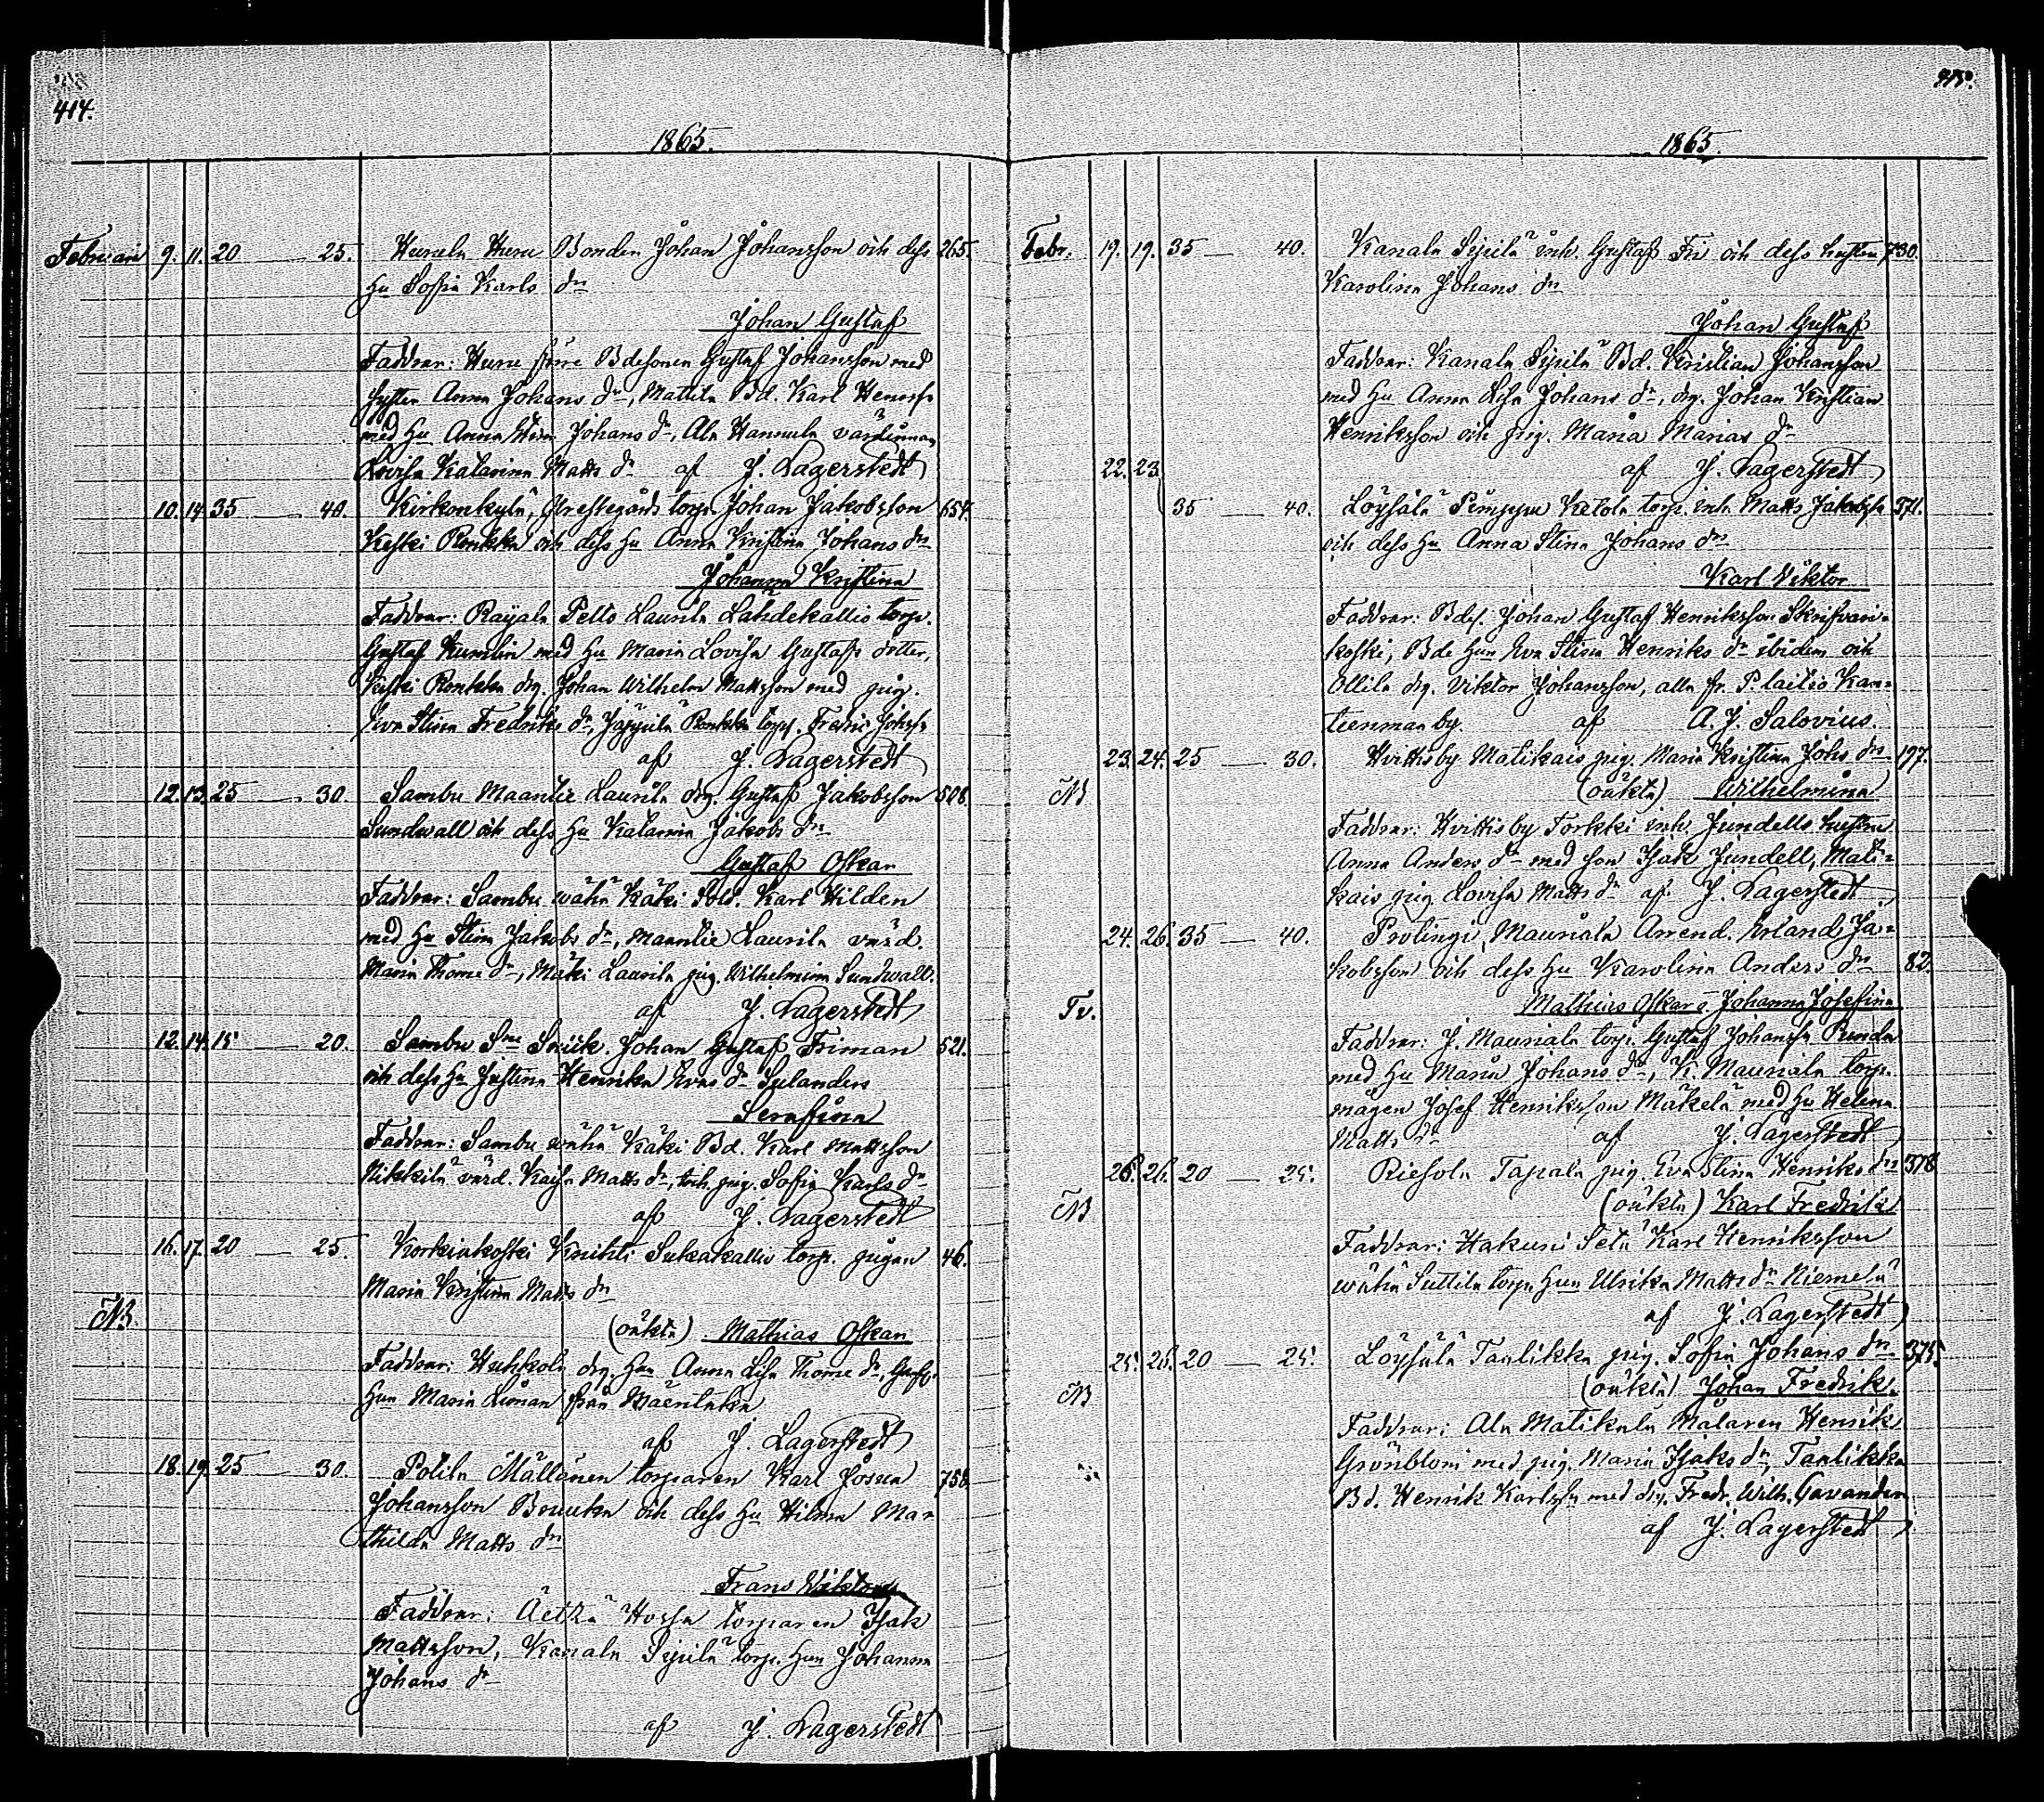 414.
1865.
Februari 9. 11. 20 — 25. Bonden Johan Johansson och dess 265.
Hu Sofia Karls dr
Johan Gustaf
Faddrar: Bdesonen Gustaf Johansson med
Anna Johans dr, Mattila Bd. Karl
med Hu Anna Stina Johans dr, Ala Hannula värdinnan
Lovisa Katarina Matts dr af J. Lagerstedt
10. 14. 35 — 40. Kirkonkylä, Prestegårds torp. Johan Jakobsson 654.
Keski Ronkka och dess Hu Anna Kristina Johans dr
Johanna Kristina
Faddrar: Pelto Laurila Lähdekallio torp.
Gustaf Kumlin med Hu Maria Lovisa Gustafs dotter,
Keski Ronkka drg. Johan Wilhelm Mattsson med pig.
Eva Stina Fredriks dr, Ronkka torp. Fredric
af J. Lagerstedt
12. 13. 25 — 30. Sambu Maantie Laurila drg. Gustaf Jakobsson 508.
Sundwall och dess Hu Katarina Jakobs dr
Gustaf Oskar
Faddrar: Sambu wähä Käki Sold. Karl Hilden
med Hu Stina Jakobs dr, Maantie Laurila värd.
Maria Thome dr, Mäki Laurila pig. Wilhelmina Sundwall.
af J. Lagerstedt
12. 14. 15 — 20. Sambu Johan Gustaf Friman 521.
och dess Hu Justina Henrika Evas dr Sulander
Serafina
Faddrar: Sambu wähä Käki Bd. Karl Mattsson
värd. Kaisa Matts dr, och pig. Sofia Karls dr
af J. Lagerstedt
16. 17. 20 — 25. Korkiakoski Knihti Sukakallio torp. pigan 46.
Maria Kristina Matts dr
NB. (oäkta) Mathias Oskar
Faddrar: Huhkola drg. Hun Anna Lisa Thome dr,
Hun Maria Liman från
af J. Lagerstedt
18. 19. 25 — 30. Potila Mällänen torparen Karl Josua 758.
Johansson och dess Hu Hilma Ma-
thilda Matts dr
Frans Viktor
Faddrar: Äetzä Hossa torparen Isak
Mattsson, Kanala Sipilä torp. Hun Johanna
Johans dr
af J. Lagerstedt
415.
1865.
Febr. 19. 19. 35 — 40. Kanala Sipilä inh. Gustaf Fri och dess hustru 730.
Karolina Johans dr
Johan Gustaf
Faddrar: Kanala Sipilä Bd. Kristian Johansson
med Hu Anna Lisa Johans dr, drg. Johan Kristian
Henriksson och pig. Maria Marias dr
af J. Lagerstedt
22. 23.
35 — 40. Löysälä Pimppu Katola torp. inh. Matts Jakobss. 371.
och dess Hu Anna Stina Johans dr
Karl Viktor
Faddrar: Bdes. Johan Gustaf Henriksson Skrifvari-
koski, Bde Hun Eva Stina Henriks dr ibidem och
Ollila drg. Viktor Johansson, alla fr. P. laitio Kan-
teenmaa by. af A. J. Salovius.
23. 24. 25 — 30. Hvittisby Matikais pig. Maria Kristina Johs dr 197.
NB (oäkta) Wilhelmina
Faddrar: Hvittisby Torkki inh. Jundells hustru
Anna Anders dr med son Isak Jundell, Mati-
kais pig. Lovisa Matts dr af J. Lagerstedt
24. 26. 35 — 40. Mauriala Arrend. Erland Ja-
kobsson och dess Hu Karolina Anders dr 82.
Tv. Mathias Oskar o Johanna Josefina
Faddrar: J. Mauriala torp. Gustaf Johanss.
med Hu Maria Johans dr, K. Mauriala torp.
mågen Josef Henriksson Mäkelä med Hu Helena
Matts dr af J. Lagerstedt
26. 26. 20 — 25. Riesola Tapala pig. Eva Stina Henriks dr 378.
NB (oäkta) Karl Fredrik
Faddrar: Hakuni Setä Karl Henriksson
wähä Suttila torp. Hun Ulrika Matts dr Niemelä
af J. Lagerstedt
25. 26. 20 — 25. Löysälä Tanlikka pig. Sofia Johans dr 375.
NB (oäkta) Johan Fredrik.
Faddrar: Ala Matikala Målaren Henrik
Grönblom med pig. Maria Isaks dr, Tanlikka
Bd. Henrik Karlss. med drg. Fredr. Wilh. Cavander
af J. Lagerstedt